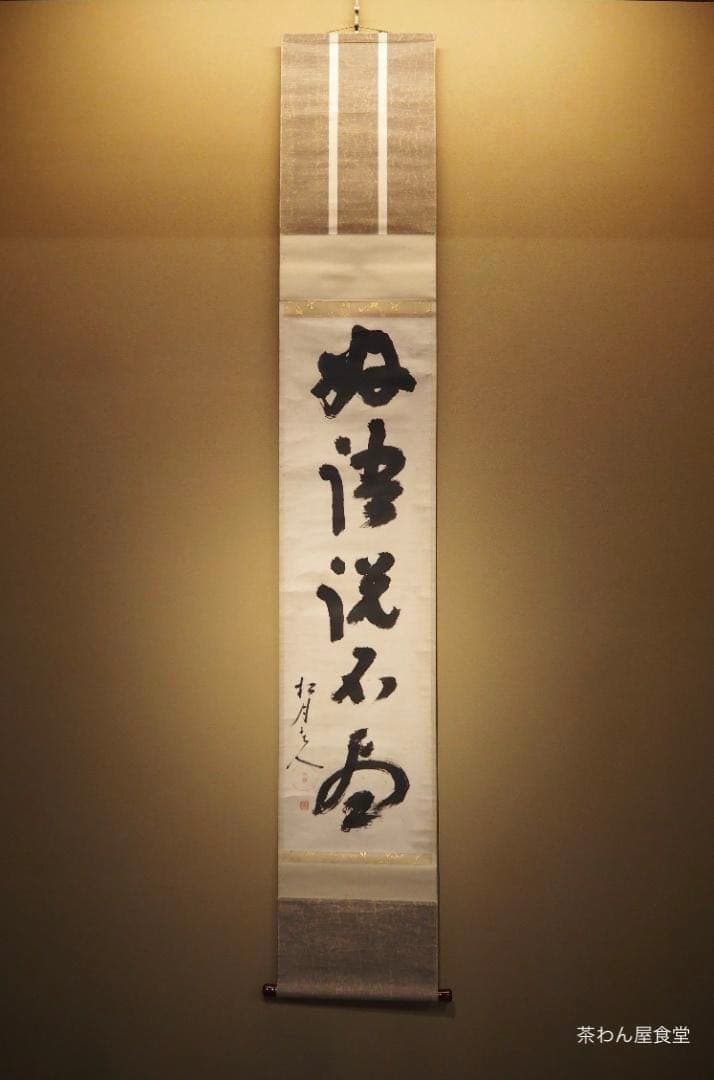 好語説不尽
松月老人
茶わん屋食堂